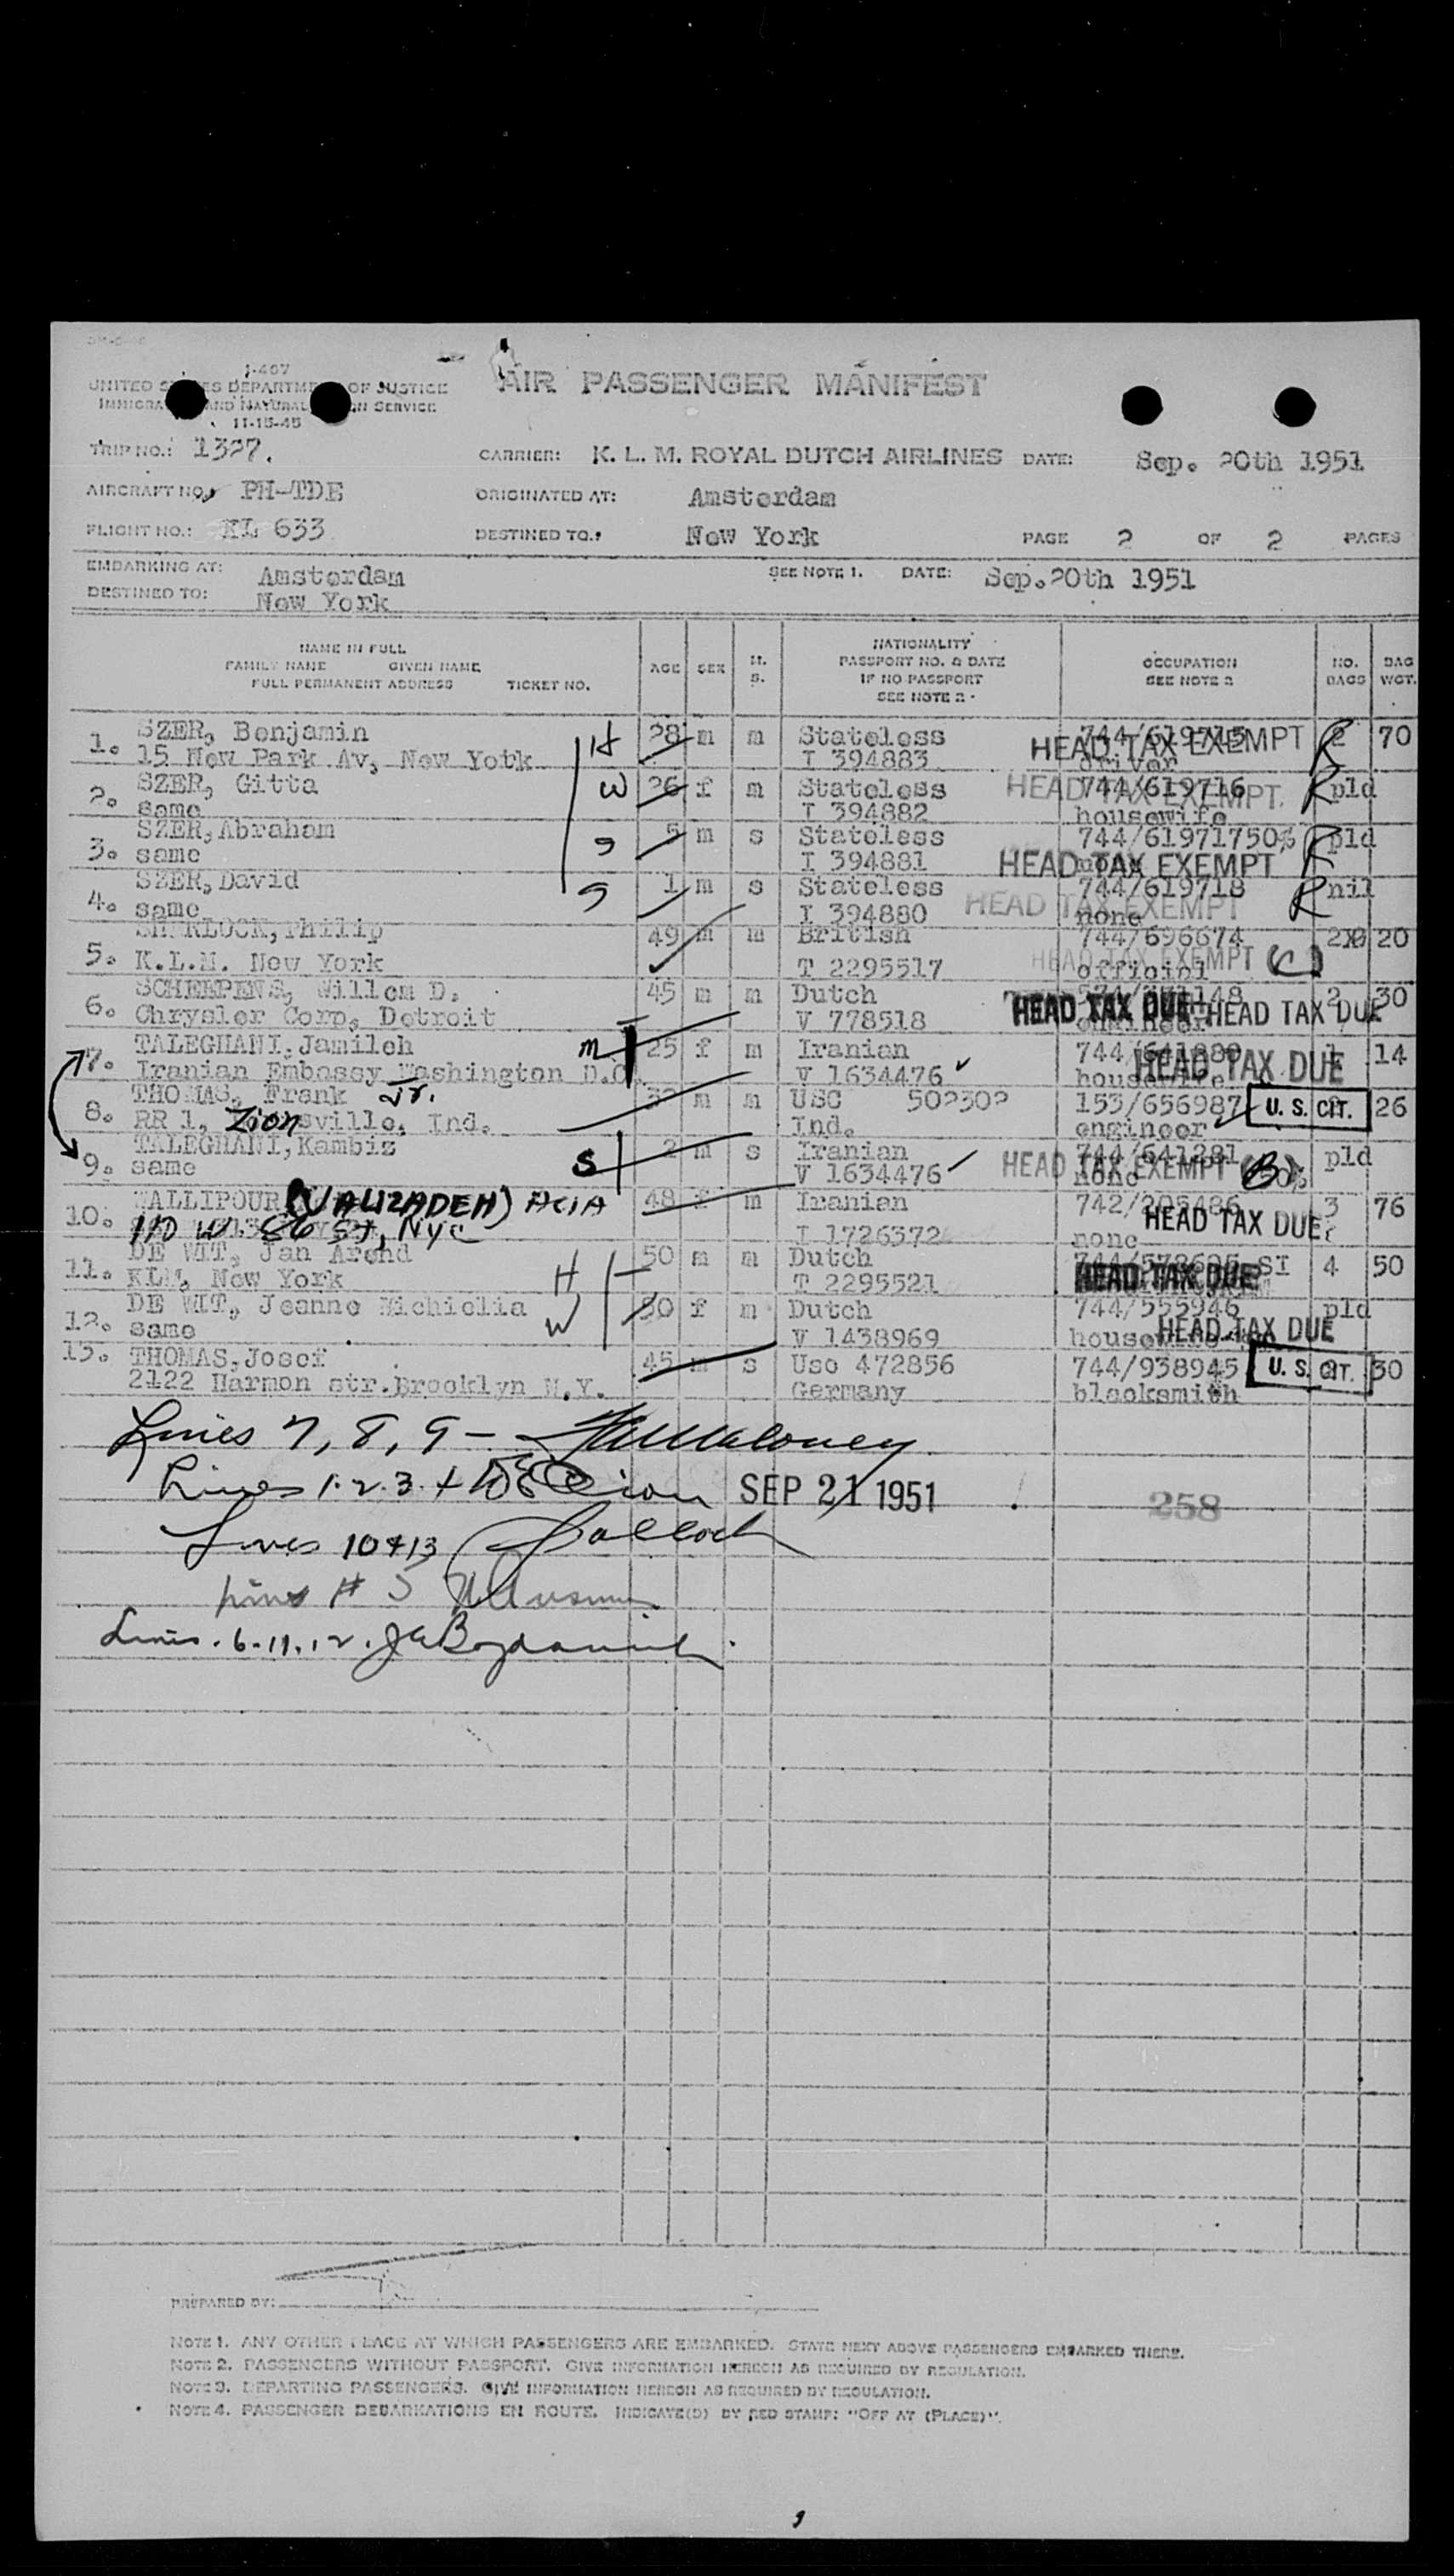 I-467
UNITED STATES DEPARTMENT OF JUSTICE
IMMIGRATION AND NATURALIZATION SERVICE
11-15-45
AIR PASSENGER MANIFEST
TRIP NO.: 1327.
CARRIER: K. L. M. ROYAL DUTCH AIRLINES DATE: Sep. 20th 1951
AIRCRAFT NO. PH-TDE ORIGINATED AT: Amsterdam
FLIGHT NO.: KL 633 DESTINED TO.: New York PAGE 2 OF 2 PAGES
EMBARKING AT: Amsterdam SEE NOTE 1. DATE: Sep.20th 1951
DESTINED TO: New York
NAME IN FULL
FAMILY NAME GIVEN NAME
FULL PERMANENT ADDRESS TICKET NO.
AGE SEX M. S.
NATIONALITY
PASSPORT NO. & DATE
IF NO PASSPORT
SEE NOTE 2
OCCUPATION
SEE NOTE 2
NO. BAGS
BAG WGT.
1. SZER, Benjamin H 28 m m Stateless 744/619715 2 70
15 New Park Av, New York I 394883 driver HEAD TAX EXEMPT R
2. SZER, Gitta W 26 f m Stateless 744/619716 pld
same I 394882 housewife HEAD TAX EXEMPT R
3. SZER, Abraham S 5 m s Stateless 744/61971750% pld
same I 394881 HEAD TAX EXEMPT R
4. SZER, David S 1 m s Stateless 744/619718 nil
same I 394880 none HEAD TAX EXEMPT R
5. Philip 49 m m British 744/696674 20
K.L.M. New York T 2295517 official HEAD TAX EXEMPT (C)
6. SCHEEPENS, Willem D. 45 m m Dutch 2 30
Chrysler Corp, Detroit V 778518 engineer HEAD TAX DUE HEAD TAX DUE
7. TALEGHANI, Jamileh m 25 f m Iranian 1 14
Iranian Embassy Washington D.C. V 1634476 housewife HEAD TAX DUE
8. THOMAS, Frank Jr. m m USC 502302 153/656987 U. S. CIT. 26
RR 1, Zionsville, Ind. Ind. engineer
9. TALEGHANI, Kambiz S 2 m s Iranian 744/641281 pld
same V 1634476 none HEAD TAX EXEMPT (B) 50%
10. WALLIPOUR (VALIZADEH) ACIA 48 f m Iranian 742/205486 3 76
110 W. 86 St, NYC I 1726372 none HEAD TAX DUE
11. DE WIT, Jan Arend H 50 m m Dutch 4 50
KLM, New York T 2295521 HEAD TAX DUE
12. DE WIT, Jeanne Michielia W 50 f m Dutch 744/555946 pld
same V 1438969 housewife HEAD TAX DUE
13. THOMAS, Josef 45 m s Usc 472856 744/938945 U. S. CIT. 30
2122 Harmon str.Brooklyn N.Y. Germany blacksmith
Lines 7, 8, 9 - Maloney
Lines 1.2.3.4 SEP 21 1951
258
Lines 10+13
Line # 5
Lines. 6-11.12.
PREPARED BY:
NOTE 1. ANY OTHER PLACE AT WHICH PASSENGERS ARE EMBARKED. STATE NEXT ABOVE PASSENGERS EMBARKED THERE.
NOTE 2. PASSENGERS WITHOUT PASSPORT. GIVE INFORMATION HEREON AS REQUIRED BY REGULATION.
NOTE 3. DEPARTING PASSENGERS. GIVE INFORMATION HEREON AS REQUIRED BY REGULATION.
NOTE 4. PASSENGER DEBARKATIONS EN ROUTE. INDICATE(D) BY RED STAMP: "OFF AT (PLACE)".